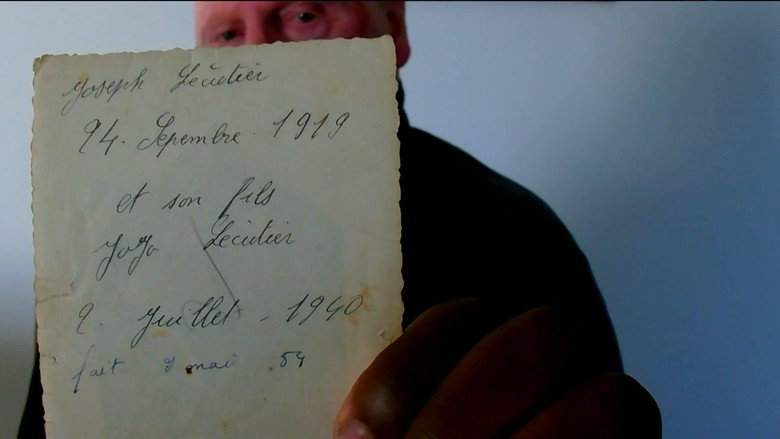 Joseph Lécutier
24. Sepembre. 1919
et son fils
JoJo Lécutier
2. Juillet - 1940
fait 8 mai 54